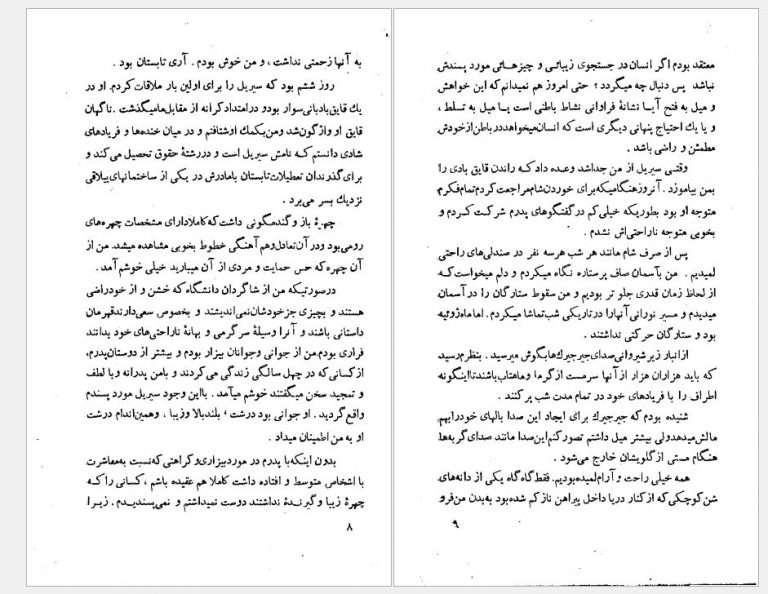 به آنها زحمتی نداشت ، و من خوش بودم . آری تابستان بود .
روز ششم بود که سیریل را برای اولین بار ملاقات کردم. او در
یك قایق بادبانی سوار بود و در امتداد کرانه از مقابل ما میگذشت . ناگهان
قایق او واژگون شد و من بکمك او شتافتم و در میان خنده‌ها و فریادهای
شادی دانستم که نامش سیریل است و در رشتهٔ حقوق تحصیل می‌کند و
برای گذرندان تعطیلات تابستان بامادرش در یکی از ساختمانهای ییلاقی
نزدیك بسر می‌برد .
چهرهٔ باز و گندمگونی داشت که کاملا دارای مشخصات چهره‌های
رومی بود و در آن تعادل و هم آهنگی خطوط بخوبی مشاهده میشد. من از
آن چهره که حس حمایت و مردی از آن میبارید خیلی خوشم آمد .
درصورتیکه من از شاگردان دانشگاه که خشن و از خودراضی
هستند و بچیزی جز خودشان نمی‌اندیشند و بخصوص سعی دارند قهرمان
داستانی باشند و آنرا وسیلهٔ سرگرمی و بهانهٔ ناراحتی‌های خود بدانند
فراری بودم. من از جوانی و جوانان بیزار بودم و بیشتر از دوستان پدرم،
از کسانی که در چهل سالگی زندگی می‌کردند و بامن پدرانه و با لطف
و تمجید سخن میگفتند خوشم میآمد . با این وجود سیریل مورد پسندم
واقع گردید. او جوانی بود درشت ، بلند بالا و زیبا ، و همین اندام درشت
او به من اطمینان میداد .
بدون اینکه با پدرم در مورد بیزاری و کراهتی که نسبت به معاشرت
با اشخاص متوسط و افتاده داشت کاملا هم عقیده باشم ، کسانی را که
چهرهٔ زیبا و گیرندهٔ نداشتند دوست نمیداشتم و نمی‌پسندیدم . زیرا
۸
معتقد بودم اگر انسان در جستجوی زیبائی و چیزهائی مورد پسندش
نباشد پس دنبال چه میگردد ؟ حتی امروز هم نمیدانم که این خواهش
و میل به فتح آیا نشانهٔ فراوانی نشاط باطنی است یا میل به تسلط ،
و یا یك احتیاج پنهانی دیگری است که انسان میخواهد در باطن از خودش
مطمئن و راضی باشد .
وقتی سیریل از من جدا شد وعده داد که راندن قایق بادی را
بمن بیاموزد . آنروز هنگامیکه برای خوردن شام مراجعت کردم تمام فکرم
متوجه او بود بطوریکه خیلی کم در گفتگوهای پدرم شرکت کردم و
بخوبی متوجه ناراحتی‌اش نشدم .
پس از صرف شام مانند هر شب هرسه نفر در صندلی‌های راحتی
لمیدیم . من بآسمان صاف پرستاره نگاه میکردم و دلم میخواست که
از لحاظ زمان قدری جلو تر بودیم و من سقوط ستارگان را در آسمان
میدیدم و مسیر نورانی آنها را در تاریکی شب تماشا میکردم. اما ماه ژوئیه
بود و ستارگان حرکتی نداشتند .
از انبار زیر شیروانی صدای جیرجیرك‌ها بگوش میرسید . بنظرم رسید
که باید هزاران هزار از آنها سرمست از گرما و ماهتاب باشند تا اینگونه
اطراف را با فریادهای خود در تمام مدت شب پر کنند .
شنیده بودم که جیرجیرك برای ایجاد این صدا بالهای خود را بهم
مالش میدهد ولی بیشتر میل داشتم تصور کنم این صدا مانند صدای گربه‌ها
هنگام مستی از گلویشان خارج می‌شود .
همه خیلی راحت و آرام لمیده بودیم. فقط گاه گاه یکی از دانه‌های
شن کوچکی که از کنار دریا داخل پیراهن نازکم شده بود به بدن من فرو
۹